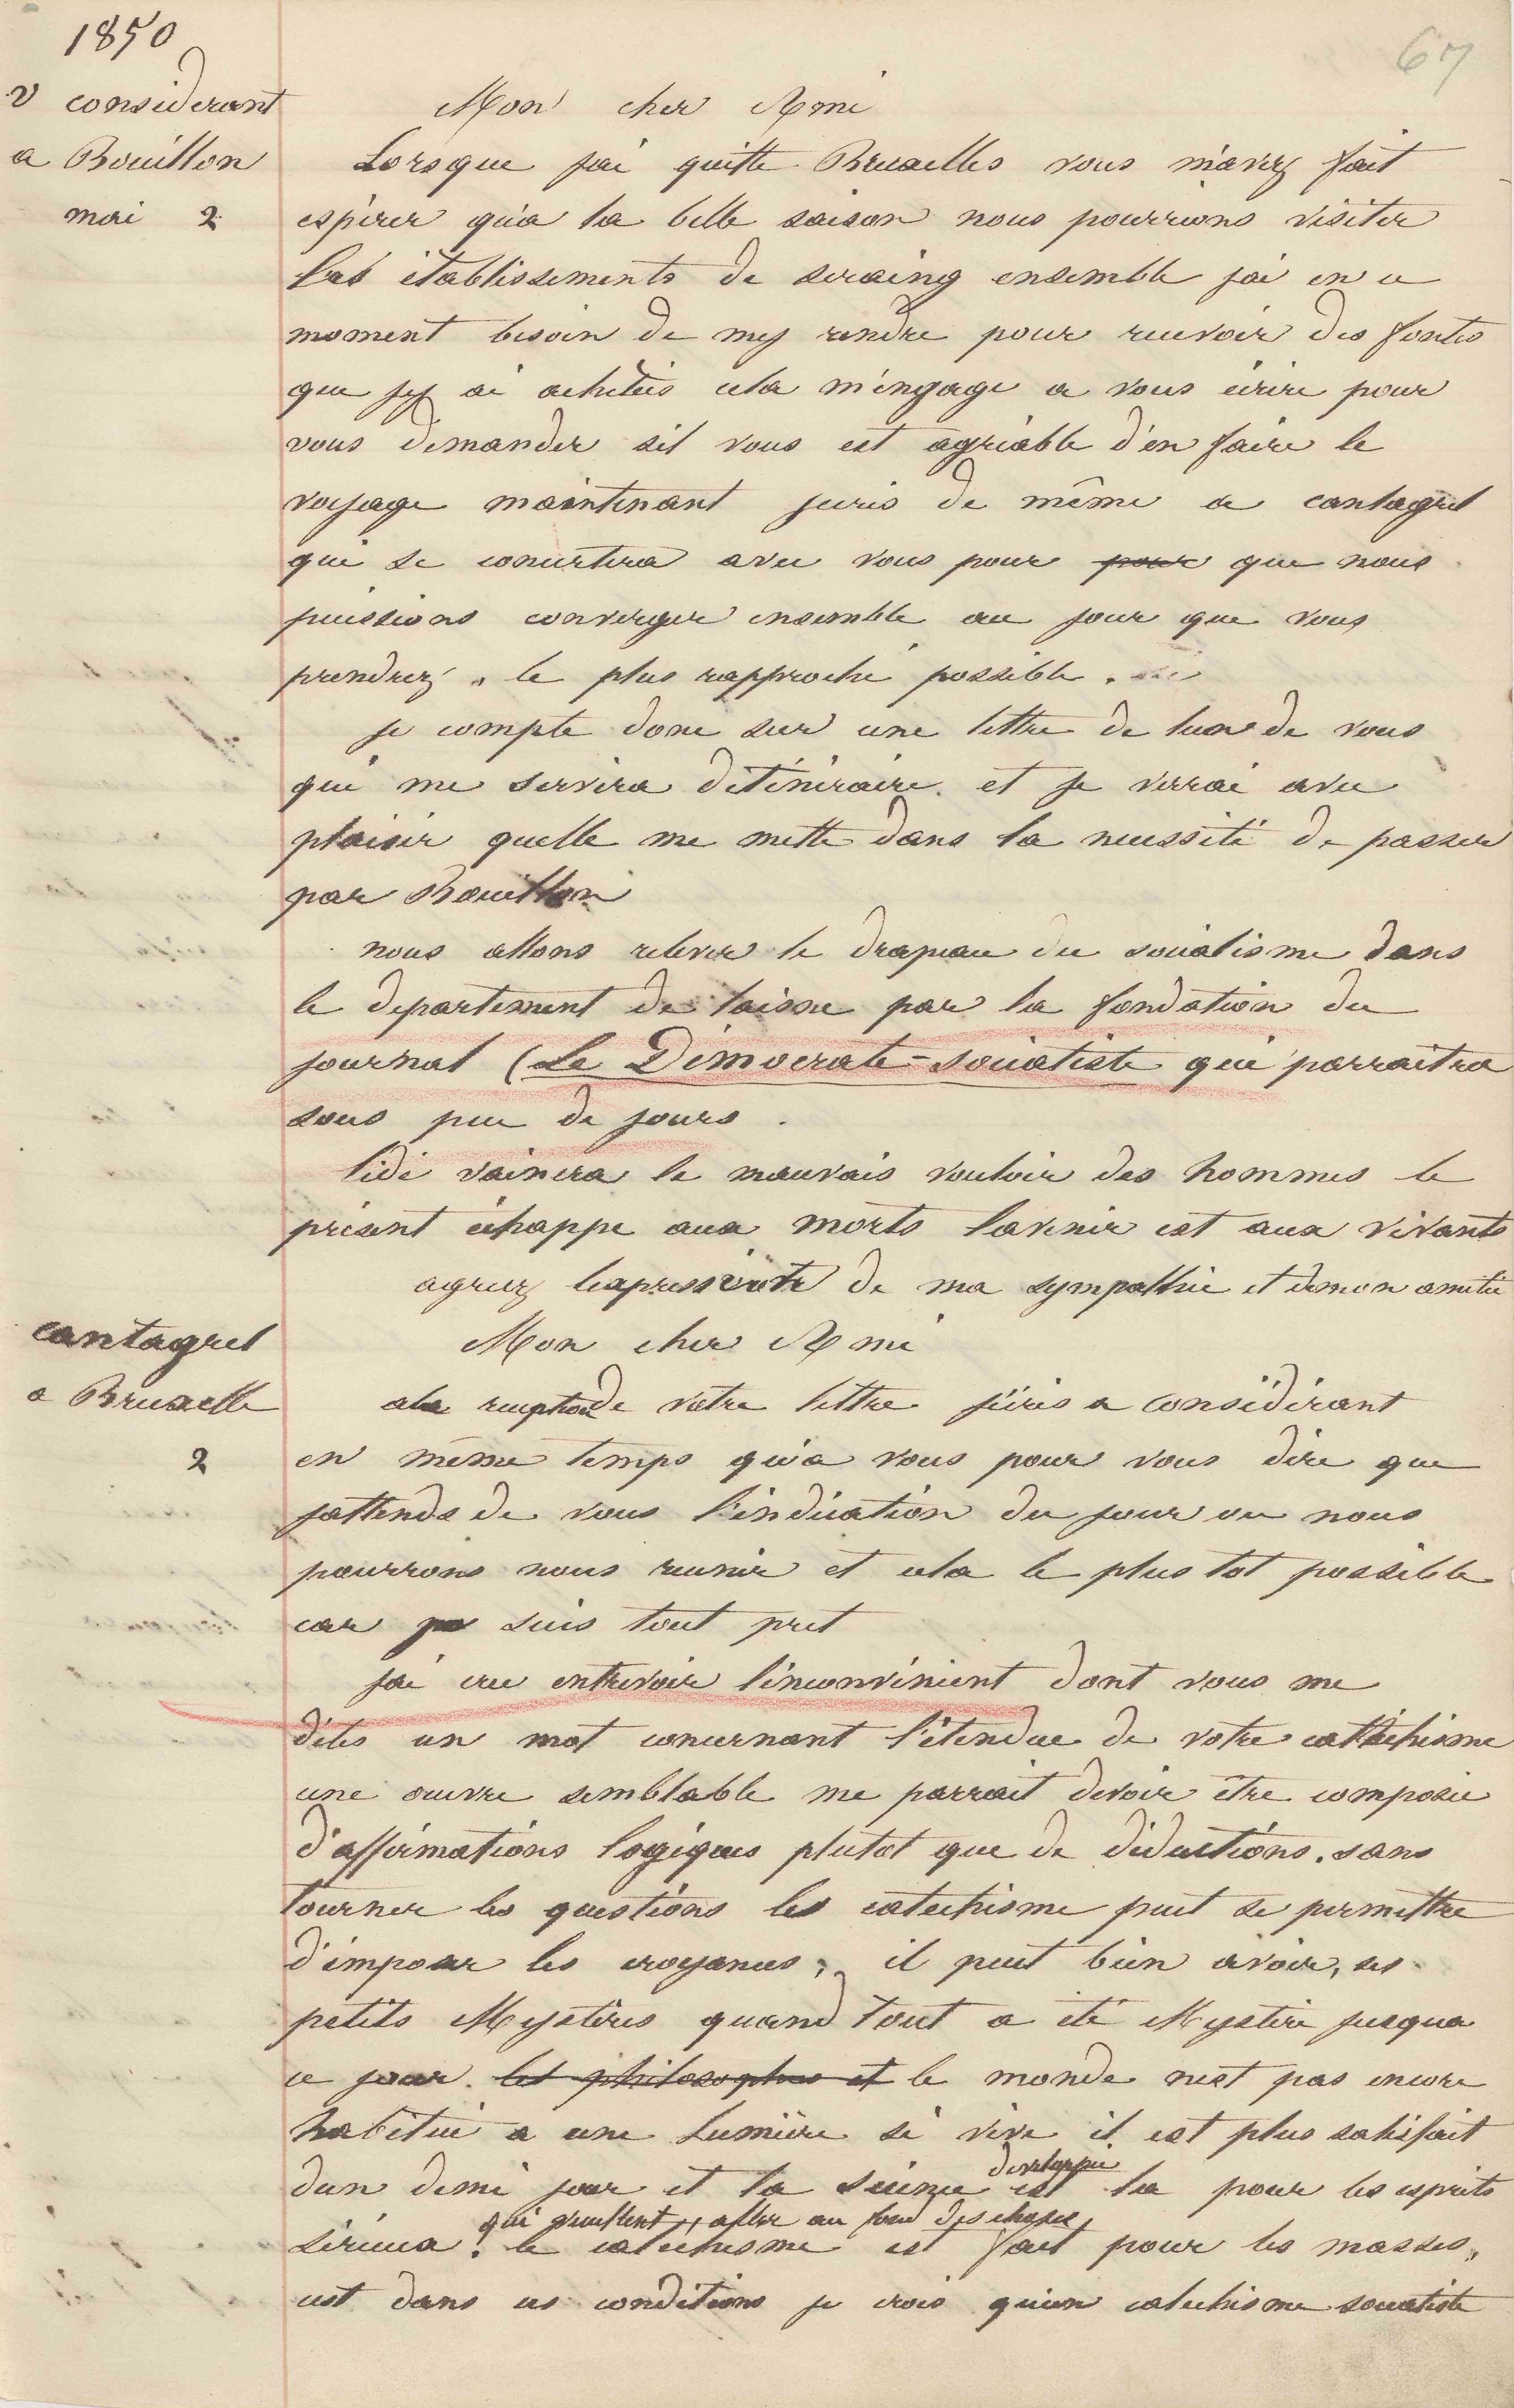 1850
67
v considerant
a Bouillon
mai 2
Mon cher Ami
Lorsque jai quitté Bruxelles vous m'avez fait
espérer qu'a la belle saison nous pourrions visiter
les établissements de seraing ensemble jai en ce
moment besoin de my rendre pour recevoir des fontes
que jy ai achetées cela m'engage a vous écrire pour
vous demander sil vous est agréable d'en faire le
voyage maintenant jecris de même a cantagrel
qui se concertera avec vous pour pour que nous
puissions converger ensemble au jour que vous
prendrez, le plus rapproché possible.
je compte donc sur une lettre de lun de vous
qui me servira d'itinéraire. et je verrai avec
plaisir quelle me mette dans la necessité de passer
par Bouillon
nous allons relever le drapeau du socialisme dans
le departement de laisne par la fondation du
journal (Le Démocrate-socialiste qui parraitra
sous peu de jours.
lidé vaincra le mauvais vouloir des hommes le
présent échappe aux morts lavenir est aux vivants
agreez lexpression de ma sympathie et demon amitie
cantagrel
a Bruxelle
2
Mon cher Ami
ala reception de votre lettre j'écris a considérant
en même temps qu'a vous pour vous dire que
jattends de vous l'indication du jour ou nous
pourrons nous reunir et cela le plus tot possible
car je suis tout pret
jai cru entrevoir l'inconvénient dont vous me
dites un mot concernant l'étendue de votre cathéchisme
une œuvre semblable me parrait devoir être composée
d'affirmations logiques plutot que de déductions. sans
tourner les questions les catechisme peut se permettre
d'imposer les croyances, il peut bien avoir, ses
petits Mystères quand tout a été Mystère jusqua
ce jour. les philosophes et le monde nest pas encore
habitué a une lumière si vive il est plus satisfait
dun demi jour et la science developpée est la pour les esprits
sérieux qui veullent aller au fond des choses, le catechisme est fait pour les masses,
cest dans ces conditions je crois qu'un catechisme socialiste